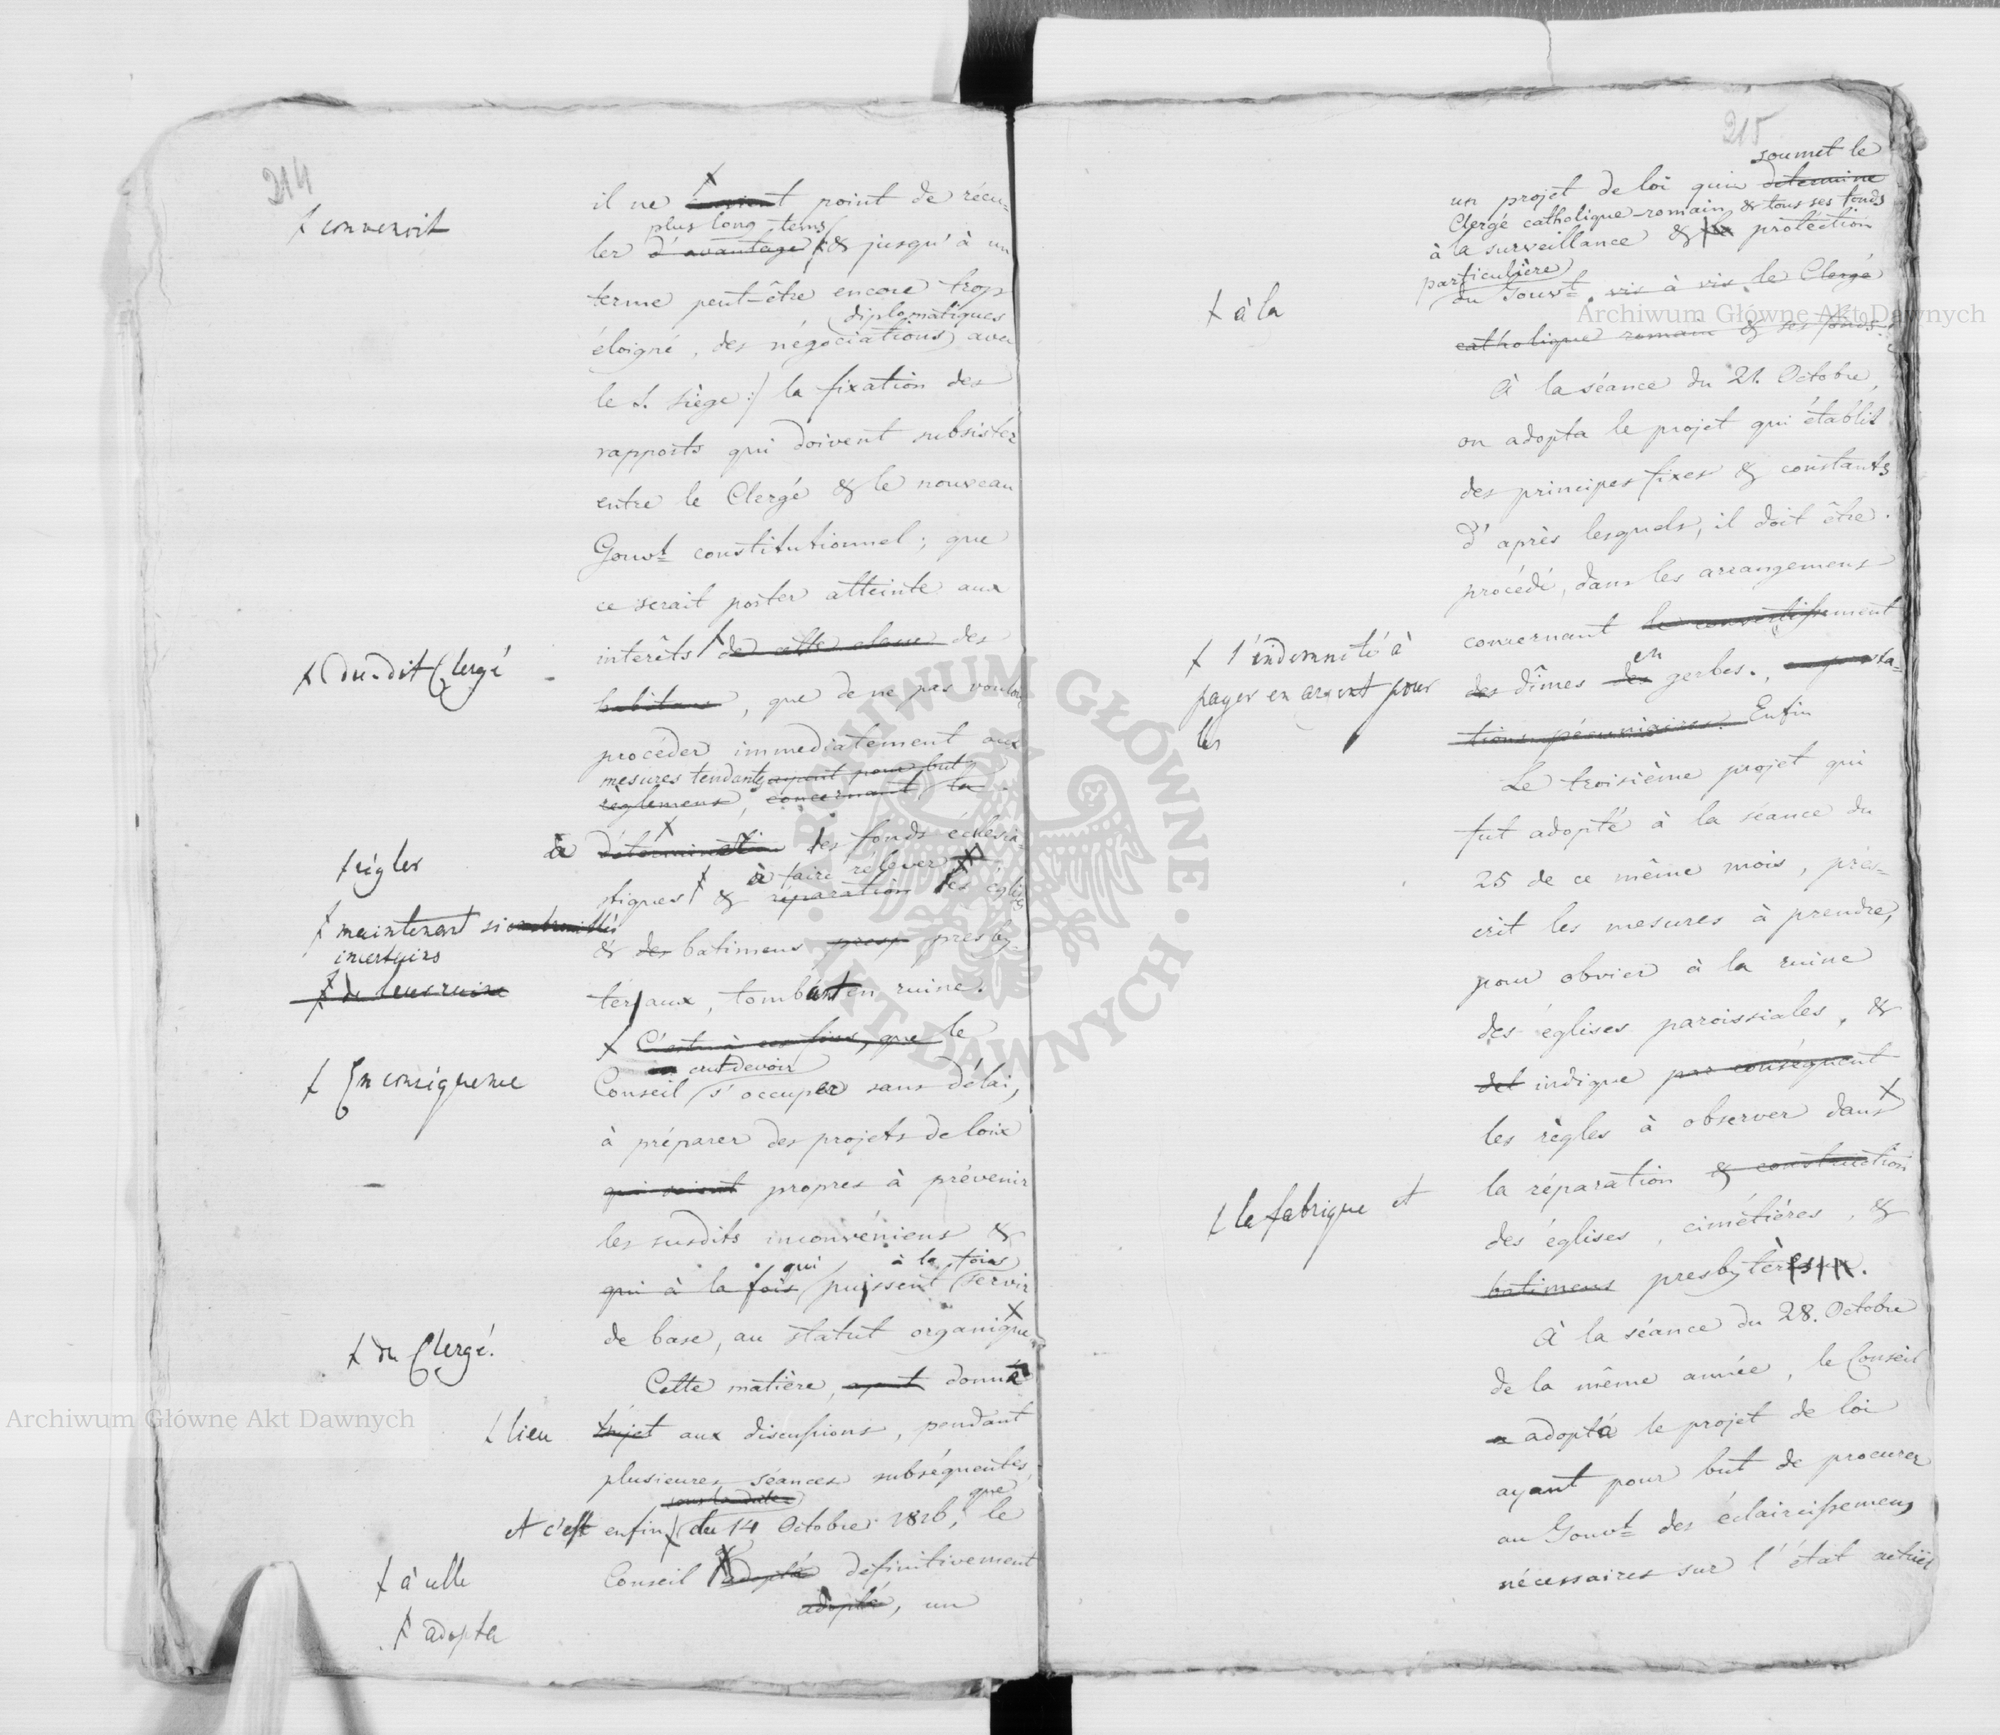 214
il ne convient point de récu-
+ convenoit
plus long tems
ler d'avantage, & jusqu'à un
terme peut-être encore trop
diplomatiques
éloigné, des négociations avec
le S. Siège :/ la fixation des
rapports qui doivent subsister
entre le Clergé & le nouveau
Gouvt constitutionnel ; que
ce serait porter atteinte aux
intérêts de cette classe des
+ du-dit Clergé
habitans, que de ne pas vouloir
procéder immediatement aux
mesures tendantes ayant pour but
règlemens, concernant la
à détermination des fonds éclésia-
+ régler
à faire relever
stiques & réparation des églises
+ maintenant si embrouillés
incertains
& des batimens presby-
+ de leur ruine
tériaux, tombant en ruine.
+ C'est à ces fins, que le
crut devoir
+ En conséquence
Conseil s'occuper sans délai,
à préparer des projets de loix
qui soient propres à prévenir
les susdits inconvéniens &
qui à la fois
qui à la fois puissent servir
de base, au statut organique
+ du Clergé.
Cette matière, ayant donné
+ lieu sujet aux discussions, pendant
plusieures séances subséquentes,
que
et c'est enfin du 14 Octobre 1816, le
+ à celle
Conseil a adopté definitivement
adopté, un
+ adopta
215
soumet le
un projet de loi qui determine
Clergé catholique-romain & tous ses fonds
à la surveillance & la protection
particulière
+ à la
du Gouvt. vis à vis le Clergé
catholique romain & ses fonds.
À la séance du 21. Octobre,
on adopta le projet qui établit
des principes fixes & constants
d'après lesquels, il doit être
procédé, dans les arrangemens
concernant le convertissement
+ l'indemnité à
payer en argent pour
les
en
des dîmes des gerbes, en presta-
tions pécuniaires. Enfin
Le troisième projet qui
fut adopté à la séance du
25 de ce même mois, pres-
crit les mesures à prendre,
pour obvier à la ruine
des églises paroissiales, &
indique par conséquent
les règles à observer dans
la réparation & construction
+ la fabrique et
des églises, cimétières, &
batimens presbytères.
À la séance du 28. Octobre
de la même année, le Conseil
a adopta le projet de loi
ayant pour but de procurer
au Gouvt des éclaircissemens
nécessaires sur l'état actuel
Archiwum Główne Akt Dawnych
Archiwum Główne Akt Dawnych
ARCHIWUM GŁÓWNE
AKT DAWNYCH